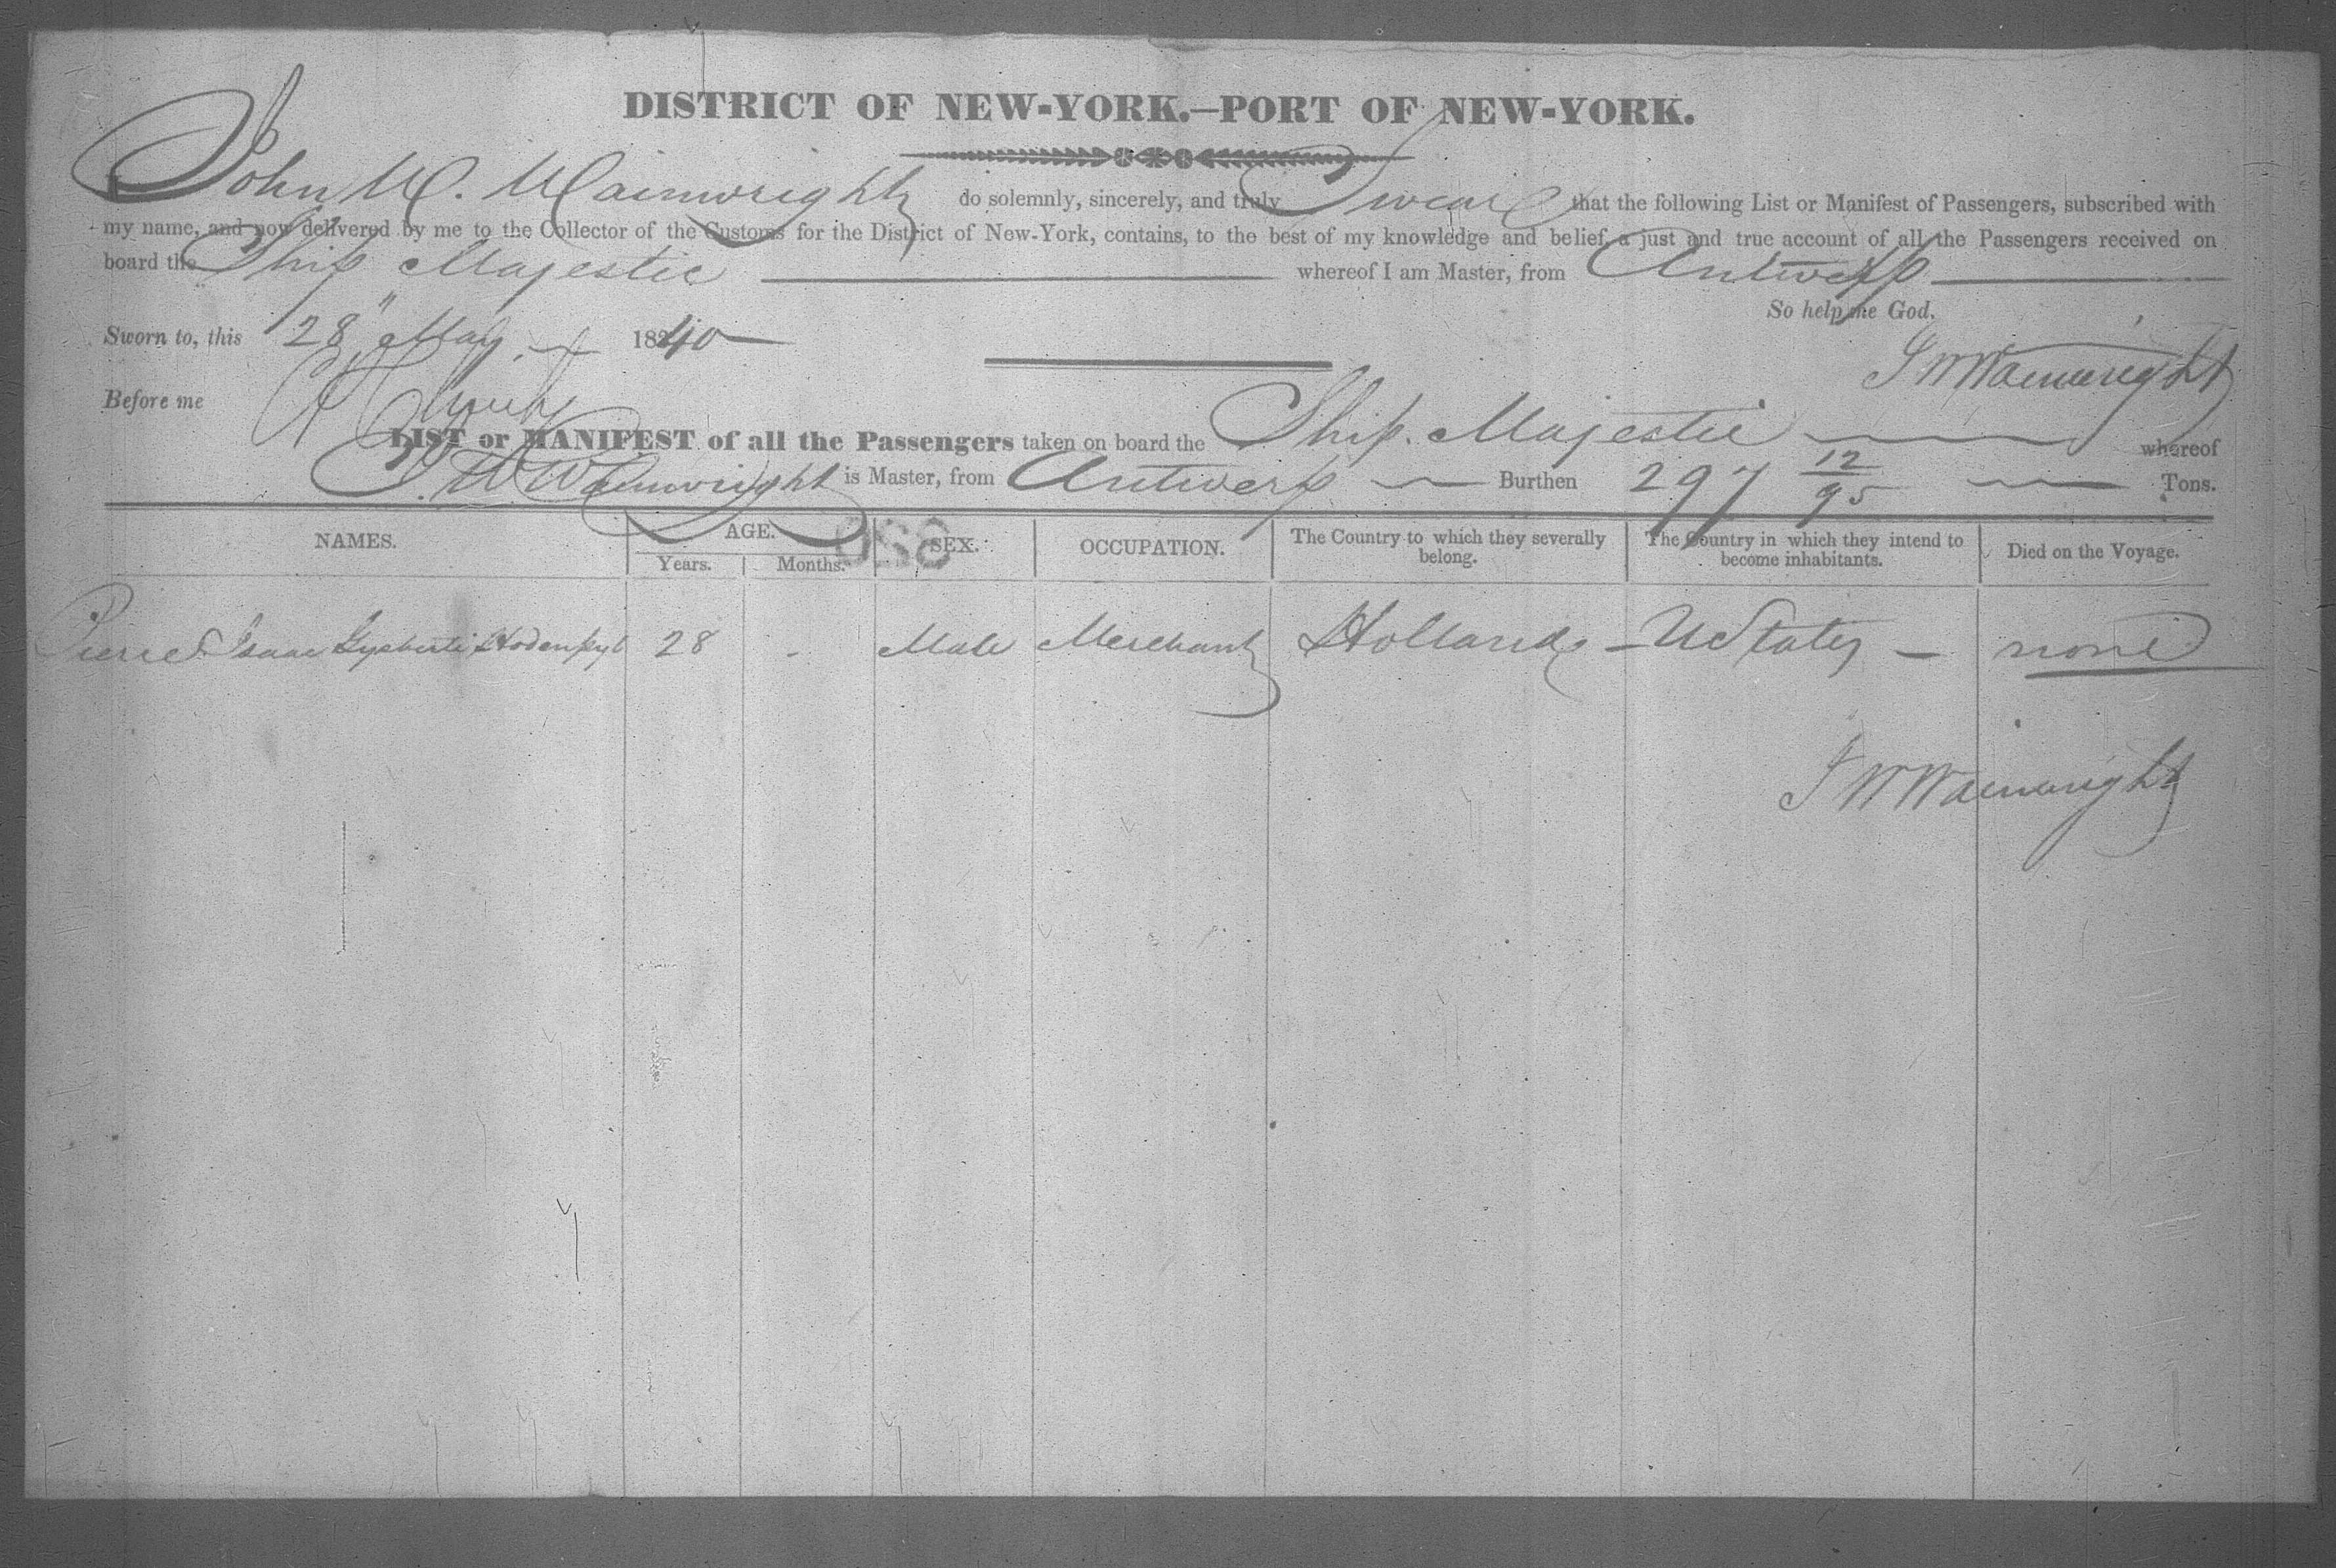 DISTRICT OF NEW-YORK.—PORT OF NEW-YORK.
I John W. Wainwright do solemnly, sincerely, and truly Swear that the following List or Manifest of Passengers, subscribed with
my name, and now delivered by me to the Collector of the Customs for the District of New-York, contains, to the best of my knowledge and belief, a just and true account of all the Passengers received on
board the Ship Majestic whereof I am Master, from Antwerp
So help me God.
Sworn to, this 28" May 1840
J W Wainwright
Before me
LIST or MANIFEST of all the Passengers taken on board the Ship. Majestic whereof
J. W Wainwright is Master, from Antwerp Burthen 297 12/95 Tons.
NAMES. AGE. SEX. OCCUPATION. The Country to which they severally belong. The Country in which they intend to become inhabitants. Died on the Voyage.
Years. Months.
Pierre Isaac Gysberti Hodenpyl 28 - Male Merchant Holland - U States - none
J W Wainwright